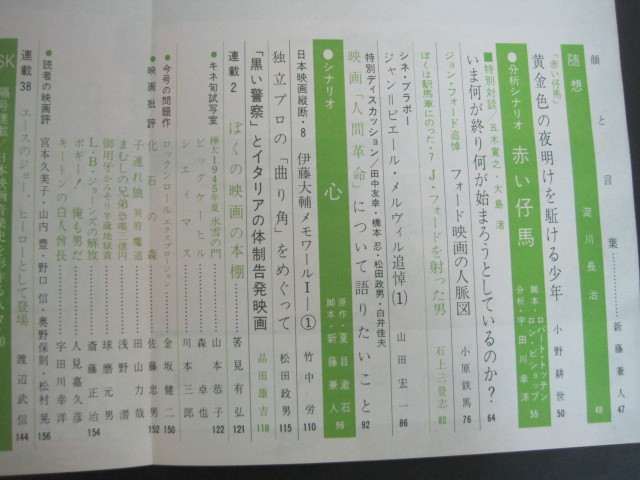 顔と言葉………新藤兼人 47
随想 淀川長治 48
「赤い仔馬」
黄金色の夜明けを駈ける少年 小野耕世 50
●分析シナリオ 赤い仔馬 脚本・ロバート・トッテン ロン・ビショップ 分析・宇田川幸洋 55
■特別対談／五木寛之・大島渚
いま何が終り何が始まろうとしているのか？ 64
ジョン・フォード追悼 フォード映画の人脈図 小原鉄馬 76
ぼくは駅馬車にのった・7 J・フォードを射った男 石上三登志 82
シネ・ブラボー
ジャン＝ピエール・メルヴィル追悼(1) 山田宏一 86
特別ディスカッション／田中友幸・橋本忍・松田政男・白井佳夫
映画「人間革命」について語りたいこと 92
●シナリオ 心 原作・夏目漱石 脚本・新藤兼人 96
日本映画縦断・8 伊藤大輔メモワールⅠ―① 竹中労 110
独立プロの「曲り角」をめぐって 松田政男 115
「黒い警察」とイタリアの体制告発映画 品田雄吉 118
連載2 ぼくの映画の本棚 筈見有弘 121
●キネ旬試写室
樺太1945年夏 氷雪の門 山本恭子 122
ビッグケーヒル 森卓也
シェイマス 川本三郎
●今号の問題作
ロックンロール・エクスプロージョン 金坂健二 150
●映画批評
化石の森 佐藤忠男 152
子連れ狼 冥府魔道 田山力哉
まむしの兄弟 恐喝三億円 浅野潜
御用牙 かみそり半蔵地獄責 球磨元男
L・B・ジョーンズの解放 斎藤正治 154
ボギー！俺も男だ 人見嘉久彦
キートンの白人酋長 宇田川幸洋
●読者の映画評
宮本久美子・山内豊・野口信・奥野保則・松村晃 156
連載38 エースのジョー、ヒーローとして登場 渡辺武信 144